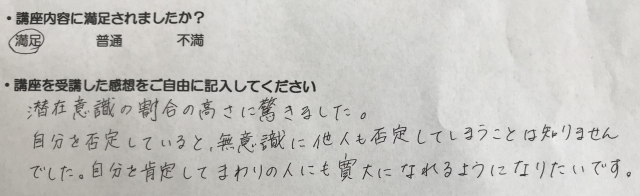 ・講座内容に満足されましたか？
満足 普通 不満
・講座を受講した感想をご自由に記入してください
潜在意識の割合の高さに驚きました。
自分を否定していると、無意識に他人も否定してしまうことは知りません
でした。自分を肯定してまわりの人にも寛大になれるようになりたいです。